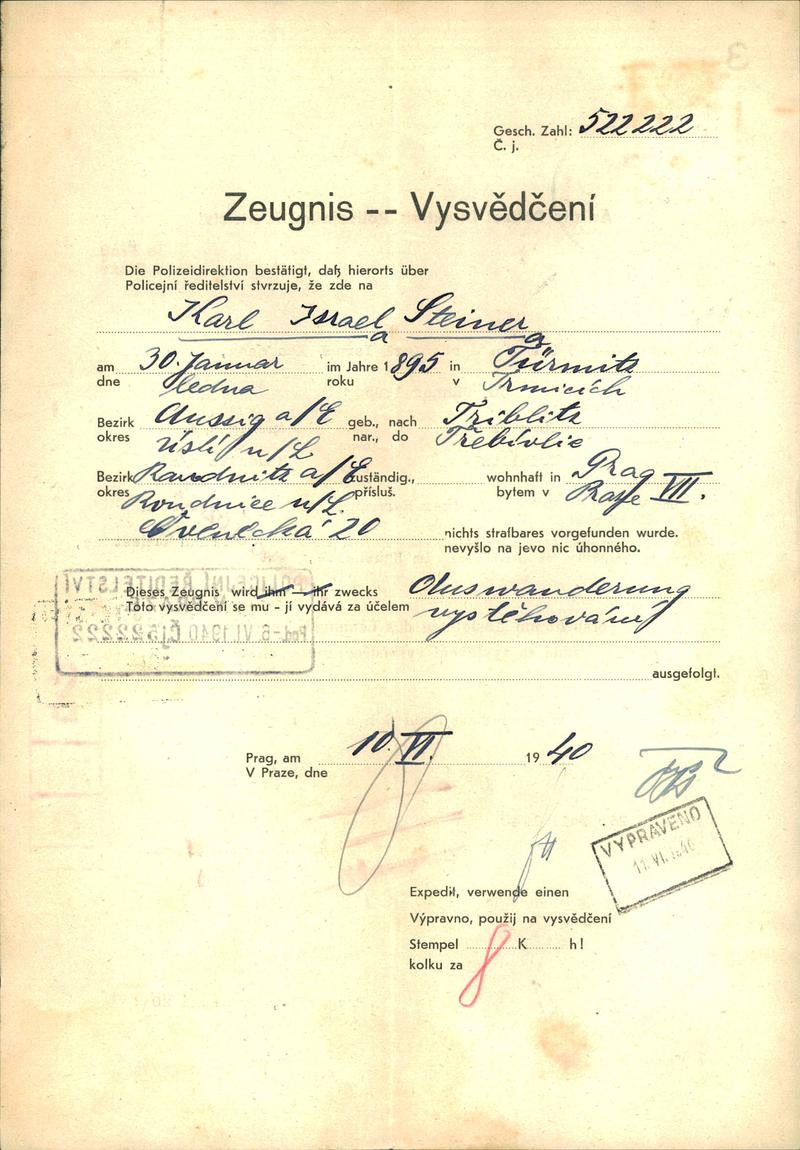 Gesch. Zahl: 522222
Č. j.
Zeugnis -- Vysvědčení
Die Polizeidirektion bestätigt, daß hierorts über
Policejní ředitelství stvrzuje, že zde na
Karl Israel Steiner
a a
am 30. Januar im Jahre 1895 in Türmitz
dne ledna roku v Trmicích
Bezirk Aussig a/E geb., nach Triblitz
okres Ústí n/L nar., do Třebívlic
Bezirk Raudnitz a/E zuständig., wohnhaft in Prag
okres Roudnice n/L. přísluš. bytem v Praze VII.
20 nichts strafbares vorgefunden wurde.
nevyšlo na jevo nic úhonného.
Dieses Zeugnis wird ihm -- ihr zwecks Auswanderung
Toto vysvědčení se mu - jí vydává za účelem vystěhování
POLICEJNÍ ŘEDITELSTVÍ
Pod. -6. VI. 1940 Čj 522222
ausgefolgt.
Prag, am 10. VI. 1940
V Praze, dne
VYPRAVENO
11. VI. 1940
Expedit, verwende einen
Výpravno, použij na vysvědčení
Stempel 8 K h!
kolku za